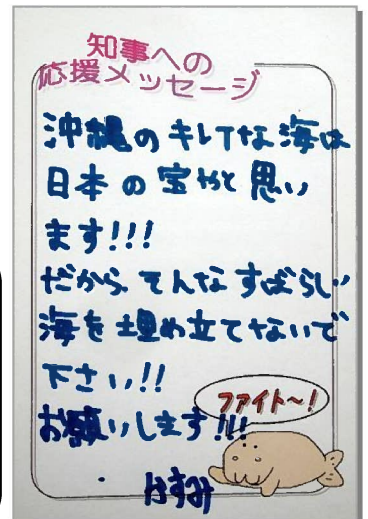 知事への
応援メッセージ
沖縄のキレイな海は
日本の宝やと思い
ます!!!
だから、そんなすばらしい
海を埋め立てないで
下さい!!
お願いします!!!
ファイト〜!
かすみ